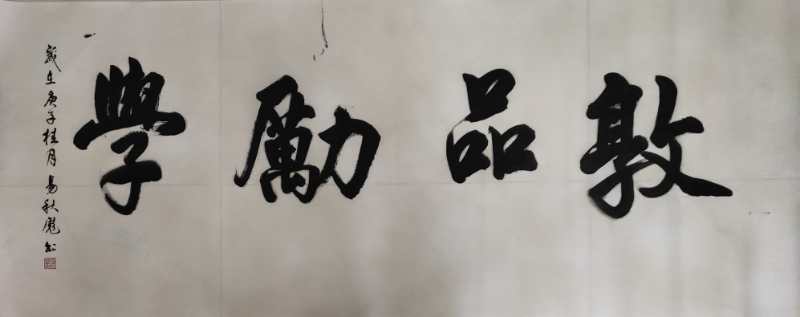 敦品勵學
歲在庚子桂月易秋彪书